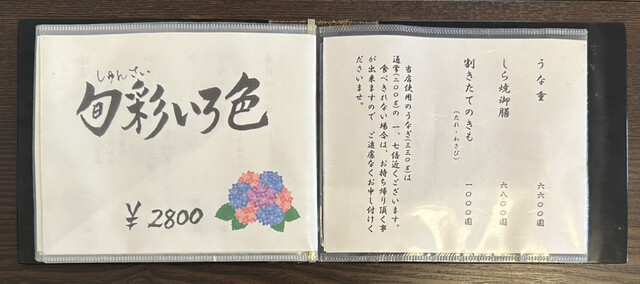 しゅんさい
旬彩いろ色
¥2800
うな重 六六〇〇圓
しら焼御膳 六八〇〇圓
割きたてのきも 一〇〇〇圓
(たれ・わさび)
当店使用のうなぎ(三三〇g)は
通常(二〇〇g)の 一、七倍近くございます。
食べきれない場合は、お持ち帰り頂く事
が出来ますので ご遠慮なくお申し付けく
ださいませ。